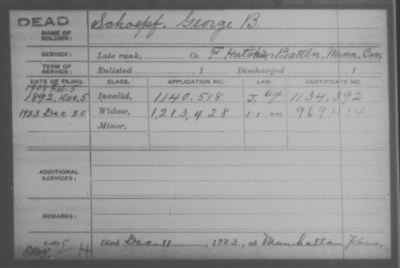 DEAD
NAME OF SOLDIER:
Schoepf, George B.
SERVICE:
Late rank, Co. F Hatch's Battln, Minn. Cav.
TERM OF SERVICE:
Enlisted , 1 Discharged , 1
DATE OF FILING. CLASS. APPLICATION NO. LAW. CERTIFICATE NO.
1892, Invalid, 1140,518 J. Age 1134,392
1923 Dec Widow, 1,213,428 969414
Minor,
ADDITIONAL SERVICES:
REMARKS:
Died Dec 11, 1923, at Manhattan Kans.